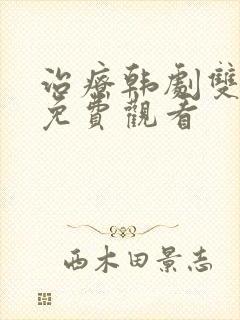 治療韩劇雙
免費觀看
西木田景志